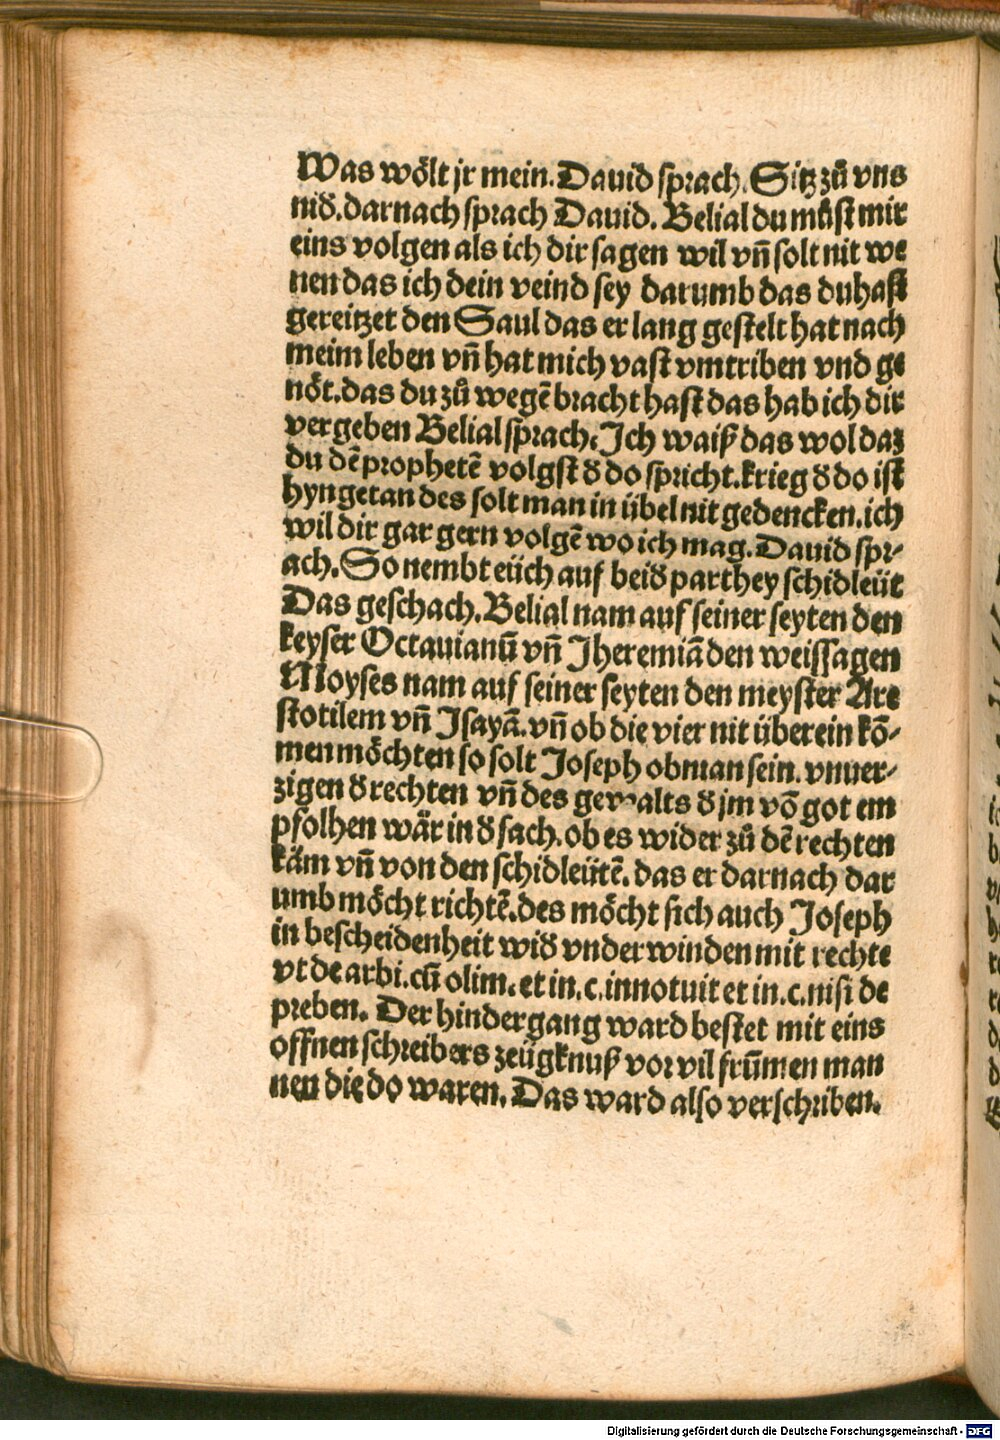 Was wölt jr mein. Dauid sprach. Sitz zů vns
nid. darnach sprach Dauid. Belial du můst mir
eins volgen als ich dir sagen wil vn̄ solt nit we
nen das ich dein veind sey darumb das du hast
gereitzet den Saul das er lang gestelt hat nach
meim leben vn̄ hat mich vast vmtriben vnd ge
nöt. das du zů wegē bracht hast das hab ich dir
vergeben Belial sprach. Ich waiß das wol daz
du dē prophetē volgst đ do spricht. krieg đ do ist
hyngetan des solt man in übel nit gedencken. ich
wil dir gar gern volgē wo ich mag. Dauid spr-
ach. So nembt eüch auf beiđ parthey schidleüt
Das geschach. Belial nam auf seiner seyten den
keyser Octauianū vn̄ Jheremiā den weissagen
Moyses nam auf seiner seyten den meyster Are
stotilem vn̄ Jsayā. vn̄ ob die vier nit überein kō-
men möchten so solt Joseph obman sein. vnuer-
zigen đ rechten vn̄ des gewalts đ jm vō got em
pfolhen wär in đ sach. ob es wider zů dē rechten
käm vn̄ von den schidleütē. das er darnach dar
umb möcht richtē. des möcht sich auch Joseph
in bescheidenheit wiđ vnderwinden mit rechte
vt de arbi. cū olim. et in. c. innotuit et in. c. nisi de
preben. Der hindergang ward bestet mit eins
offnen schreibers zeügknuß vor vil frūmen man
nen die do waren. Das ward also verschriben.
Digitalisierung gefördert durch die Deutsche Forschungsgemeinschaft - DFG